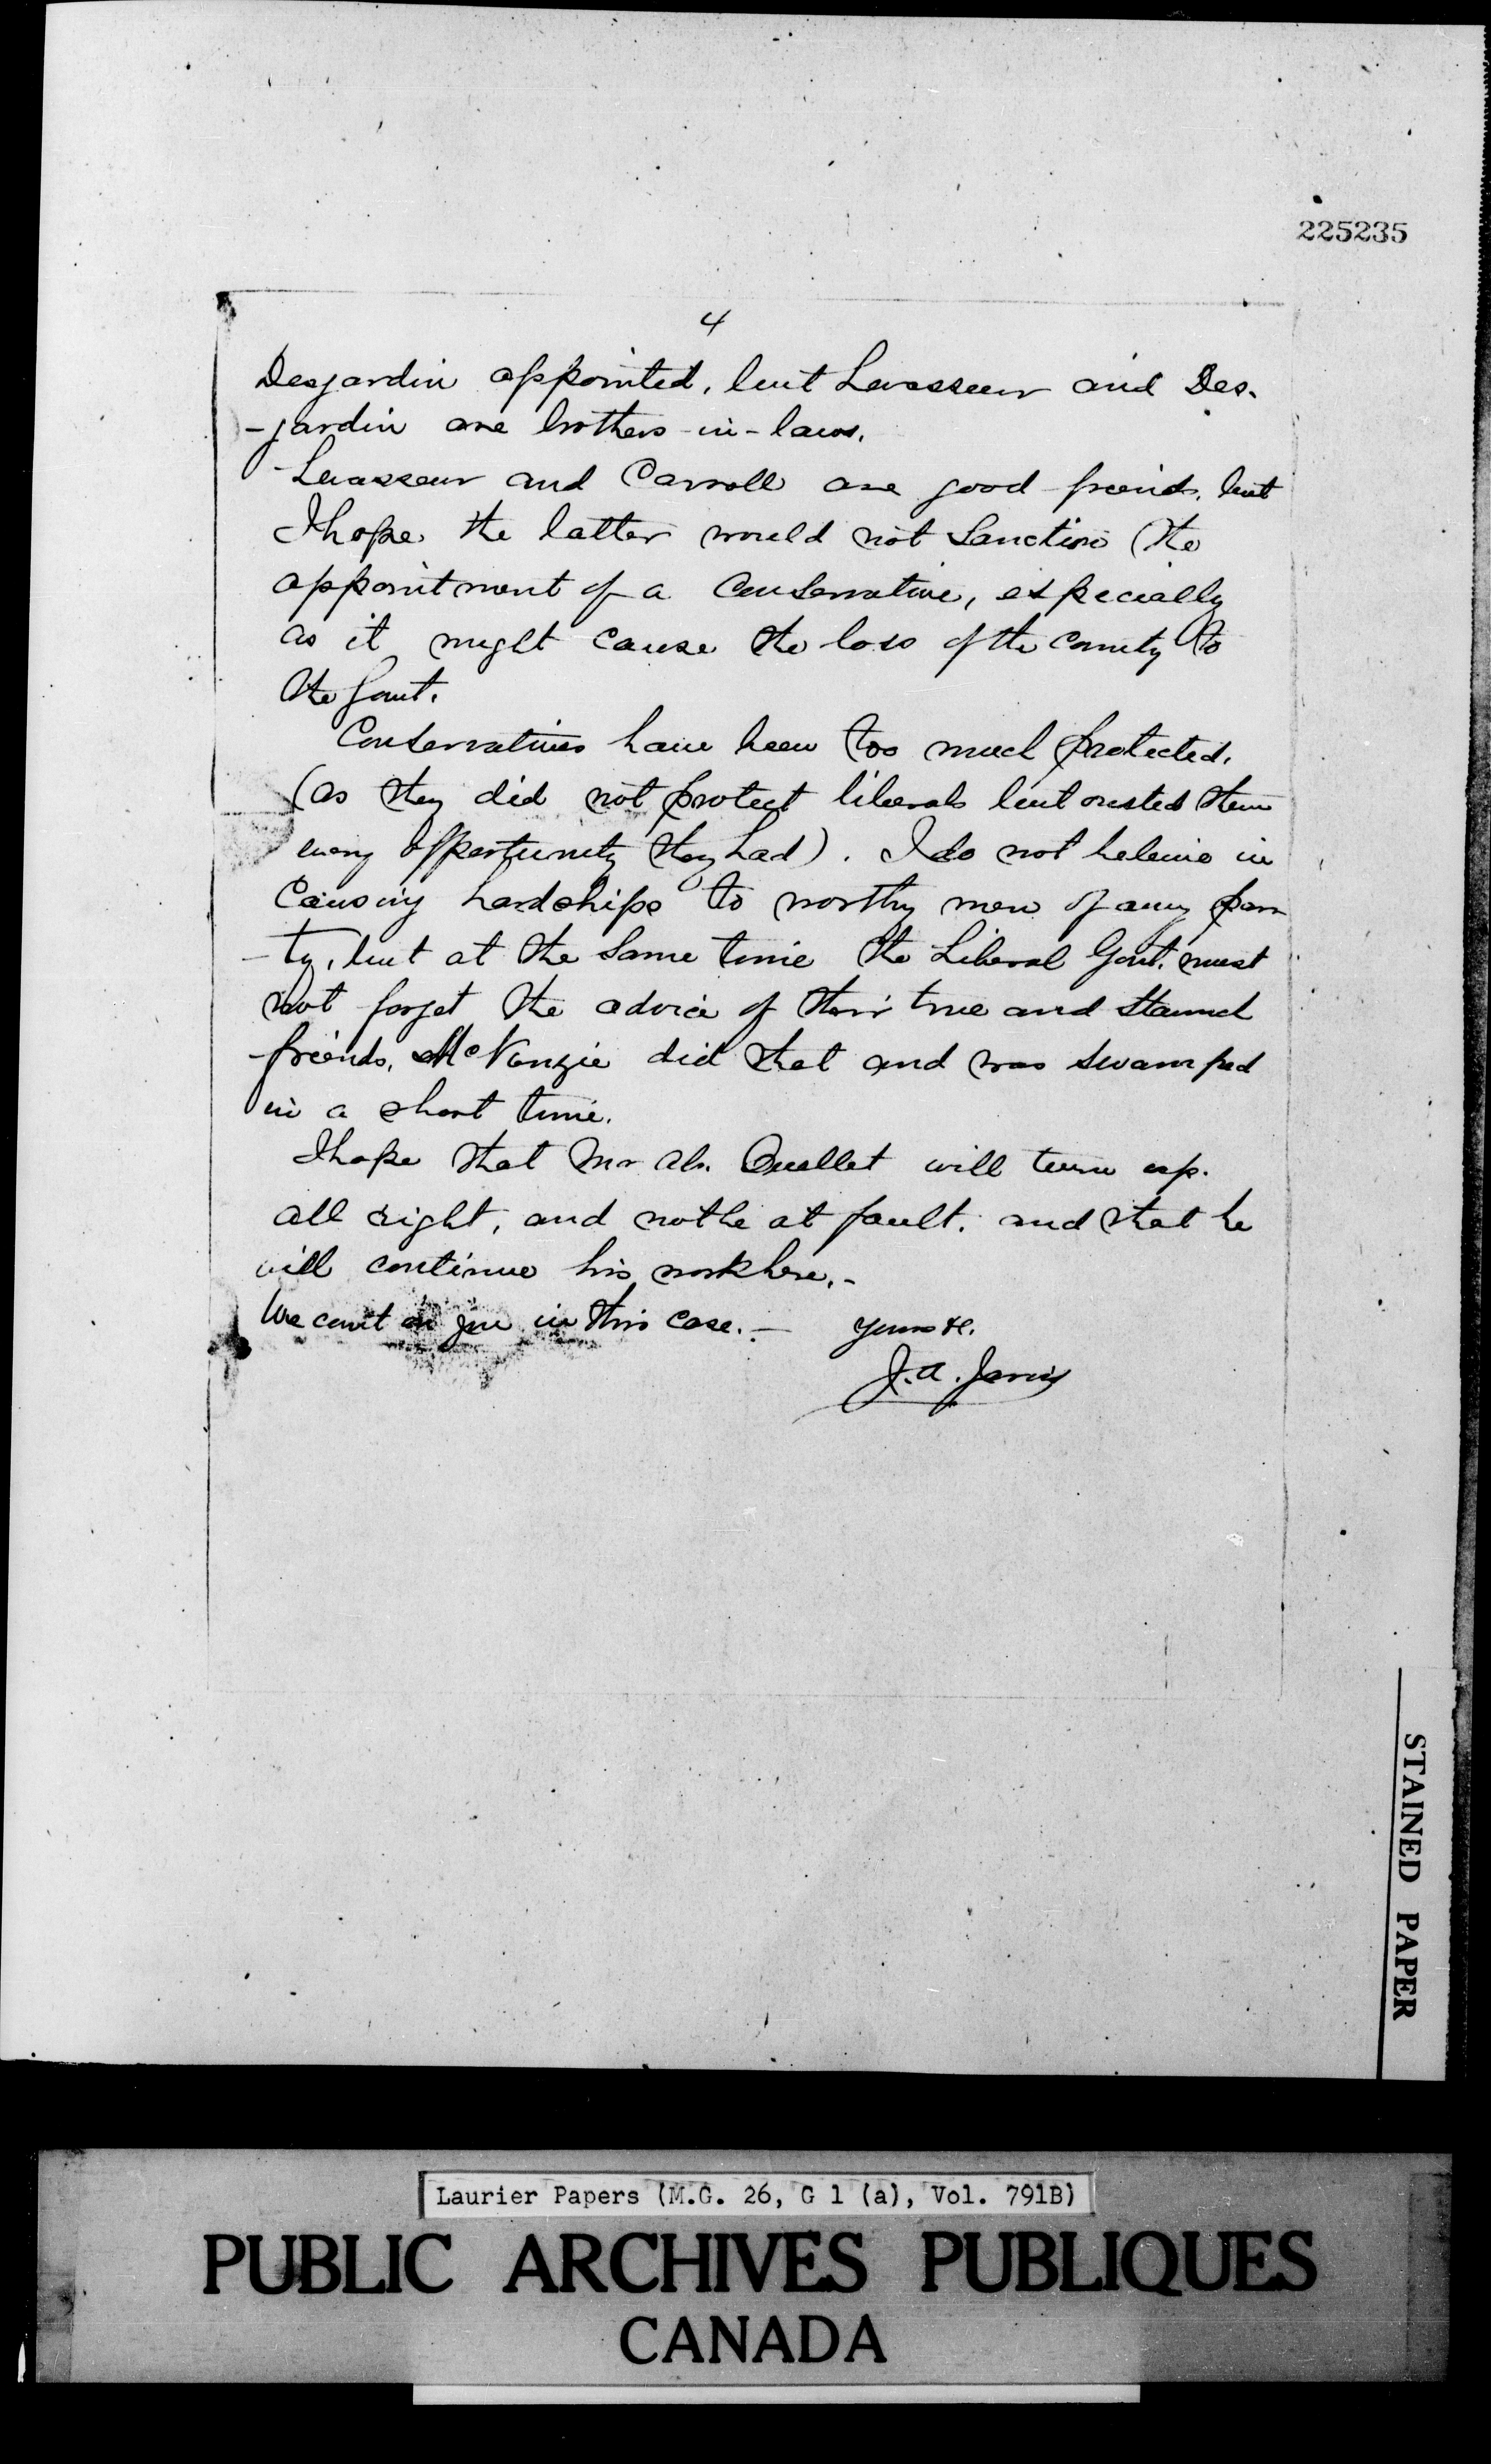 225235
4
Desjardin appointed, but Levasseur and Des-
-jardin are brothers-in-laws.
Levasseur and Carroll are good friends, but
I hope the latter would not sanction the
appointment of a Conservative, especially
as it might cause the loss of the county to
the Govt.
Conservatives have been too much protected.
(as they did not protect liberals but ousted them
every opportunity they had). I do not beleive in
causing hardships to worthy men of any par
-ty, but at the same time the Liberal Govt. must
not forget the advice of their true and staunch
friends. McKenzie did that and was swamped
in a short time.
I hope that Mr Ouellet will turn up
all right, and not be at fault, and that he
will continue his work here.-
We count on you in this case.- Yours &c.
J. A. Jarvis
STAINED PAPER
Laurier Papers (M.G. 26, G 1 (a), Vol. 791B)
PUBLIC ARCHIVES PUBLIQUES
CANADA